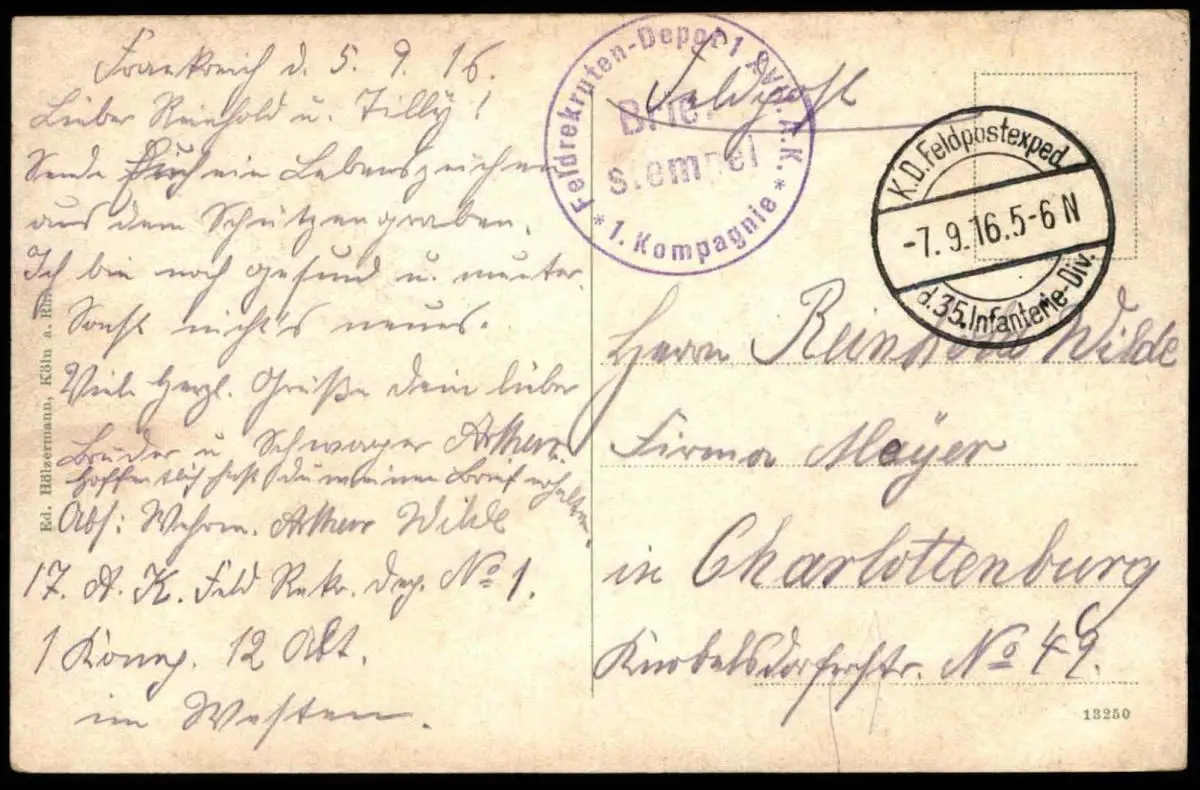 Frankreich d. 5. 9. 16.
Lieber Reinhold u. Tilly!
Sende Euch ein Lebenszeichen
aus dem Schützengraben.
Ich bin noch gesund u. munter.
Sonst nicht's neues.
Viele herzl. Grüße dein lieber
Bruder u Schwager Arthur.
Hoffentlich hast du meinen Brief erhalten.
Abs: Wehrm. Arthur Wilde
17. A. K. Feld Rekr. Dep. No 1.
1 Komp. 12 Abt.
im Westen.
Ed. Hölzermann, Köln a. Rh.
Feldpost
Feldrekruten-Depot 1 XVII. A.K.
Brief
stempel
* 1. Kompagnie *
K.D.Feldpostexped.
-7.9.16.5-6 N
d.35.Infanterie-Div.
Herrn Reinhold Wilde
Firma Mayer
in Charlottenburg
Knobelsdorferstr. No 49.
13250